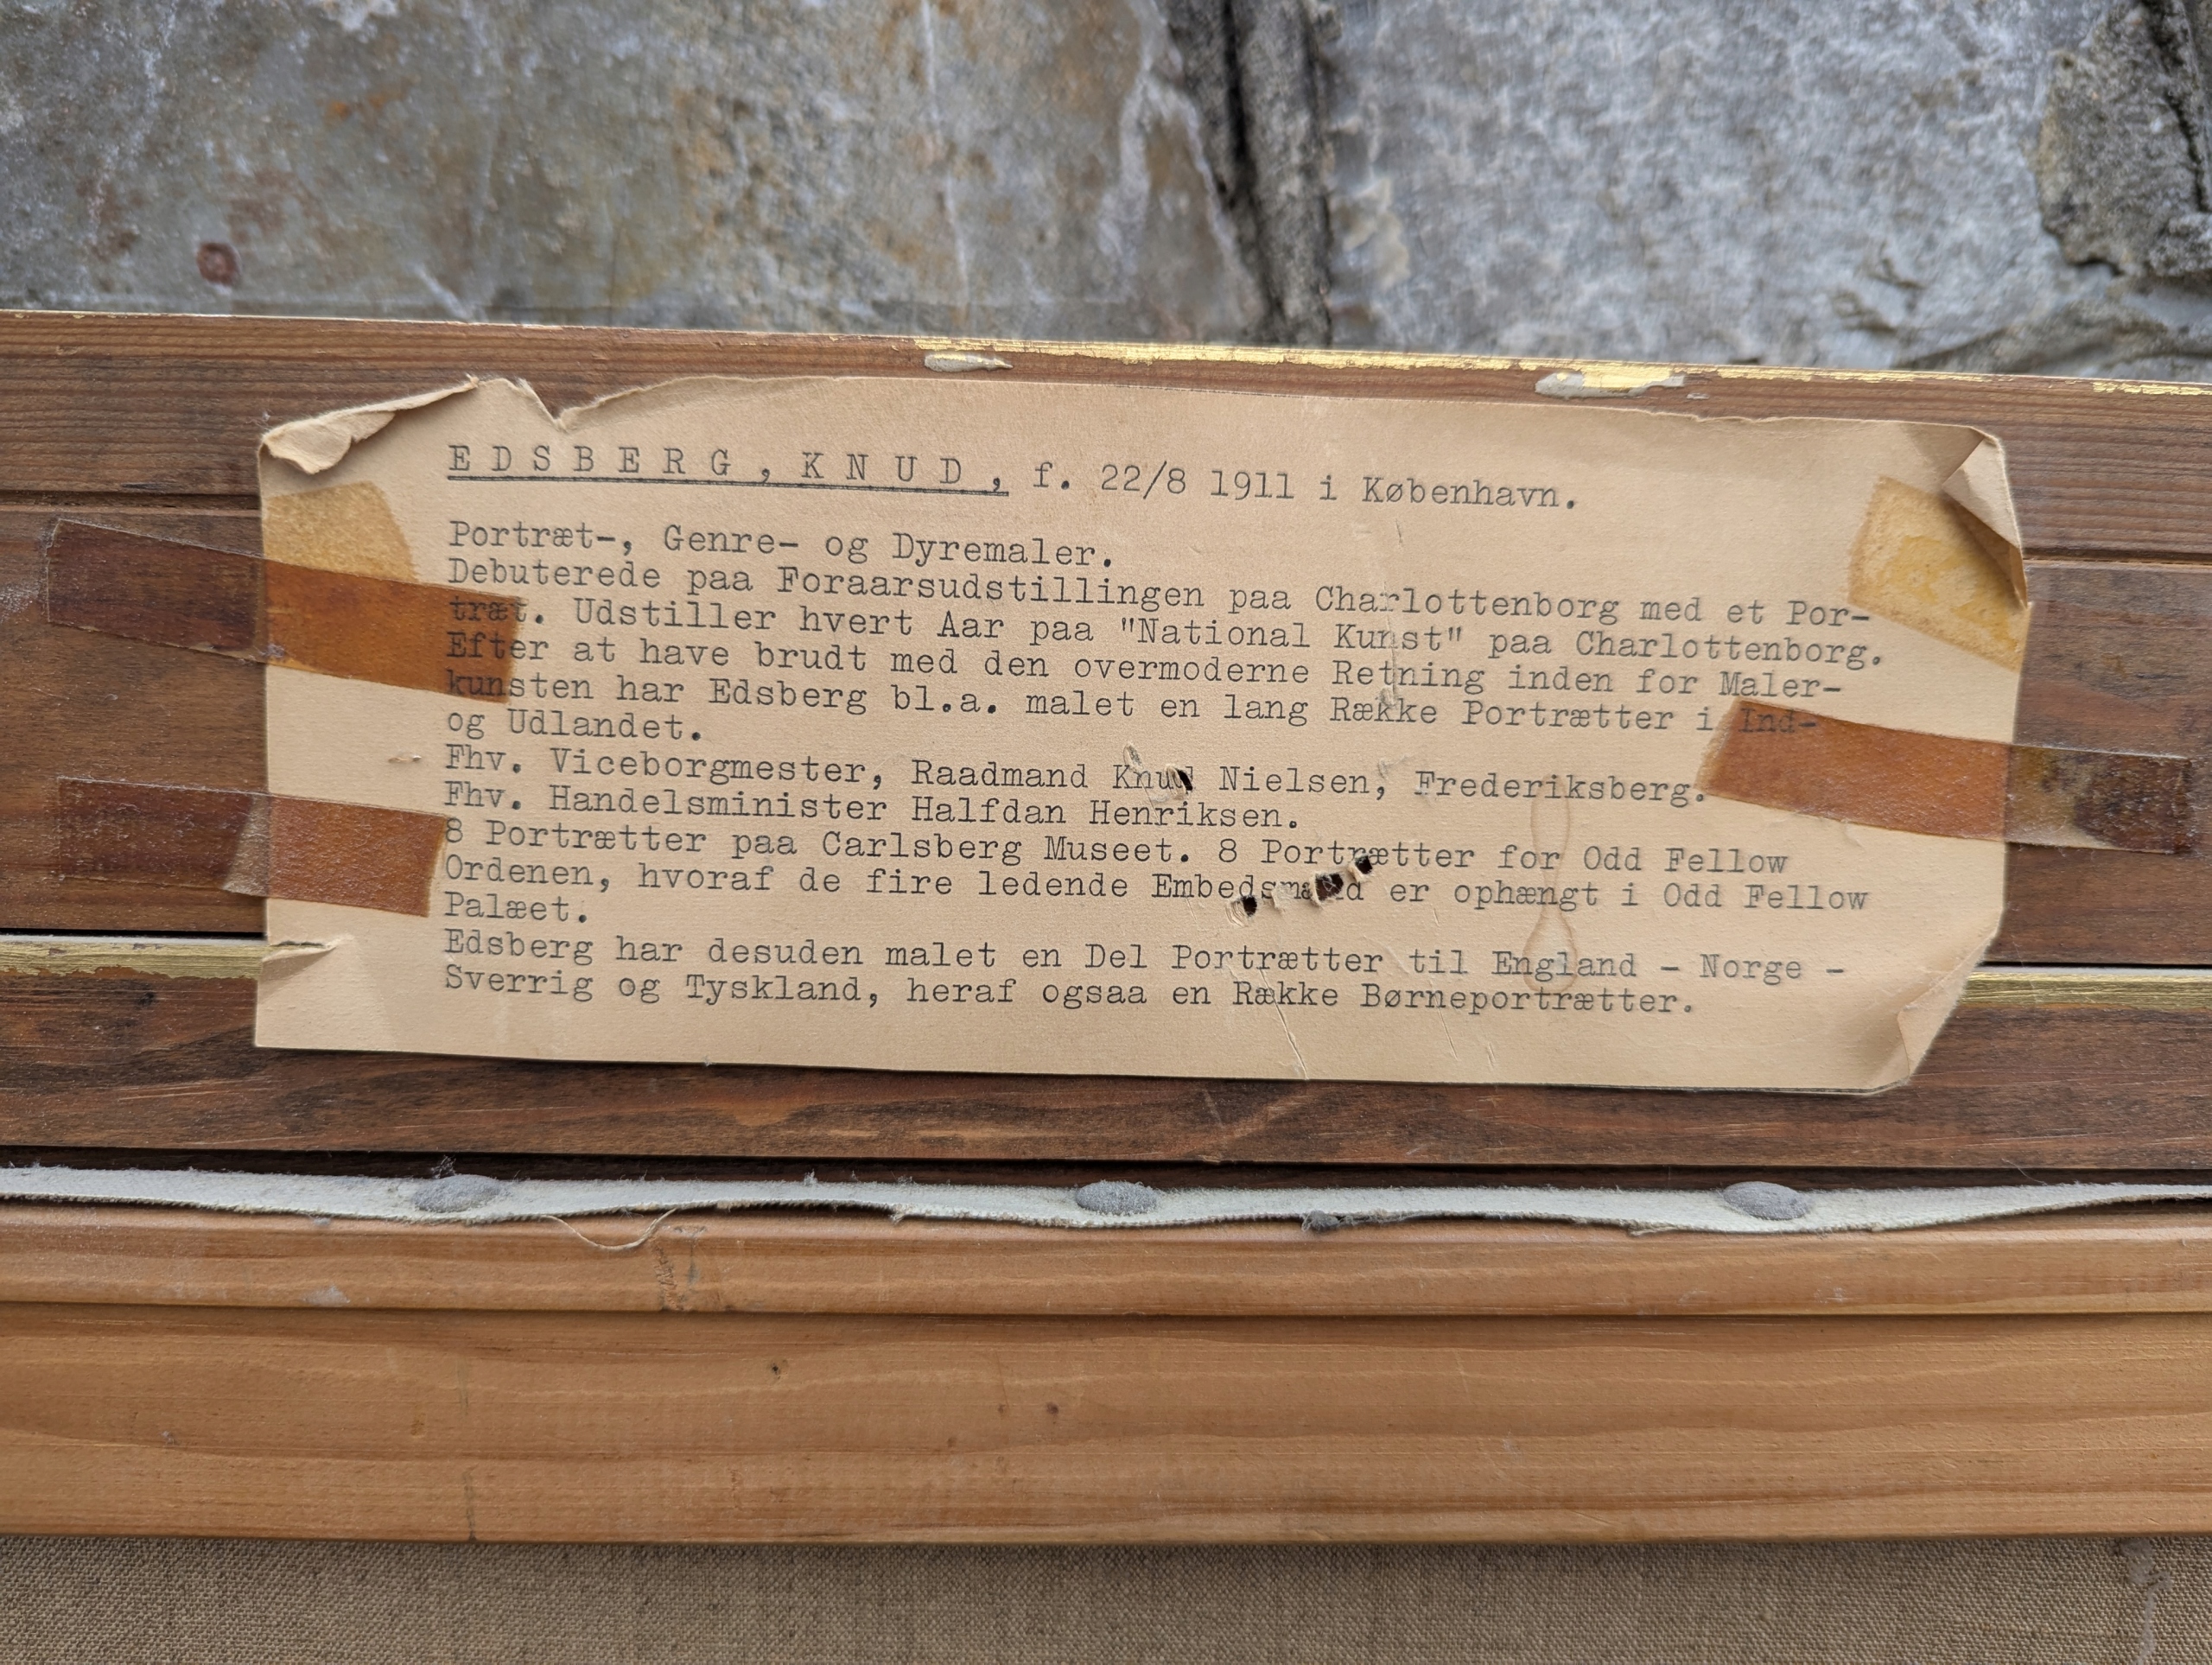 EDSBERG, KNUD, f. 22/8 1911 i København.
Portræt-, Genre- og Dyremaler.
Debuterede paa Foraarsudstillingen paa Charlottenborg med et Por-
træt. Udstiller hvert Aar paa "National Kunst" paa Charlottenborg.
Efter at have brudt med den overmoderne Retning inden for Maler-
kunsten har Edsberg bl.a. malet en lang Række Portrætter i Ind-
og Udlandet.
Fhv. Viceborgmester, Raadmand Knud Nielsen, Frederiksberg.
Fhv. Handelsminister Halfdan Henriksen.
8 Portrætter paa Carlsberg Museet. 8 Portrætter for Odd Fellow
Ordenen, hvoraf de fire ledende Embedsmænd er ophængt i Odd Fellow
Palæet.
Edsberg har desuden malet en Del Portrætter til England - Norge -
Sverrig og Tyskland, heraf ogsaa en Række Børneportrætter.